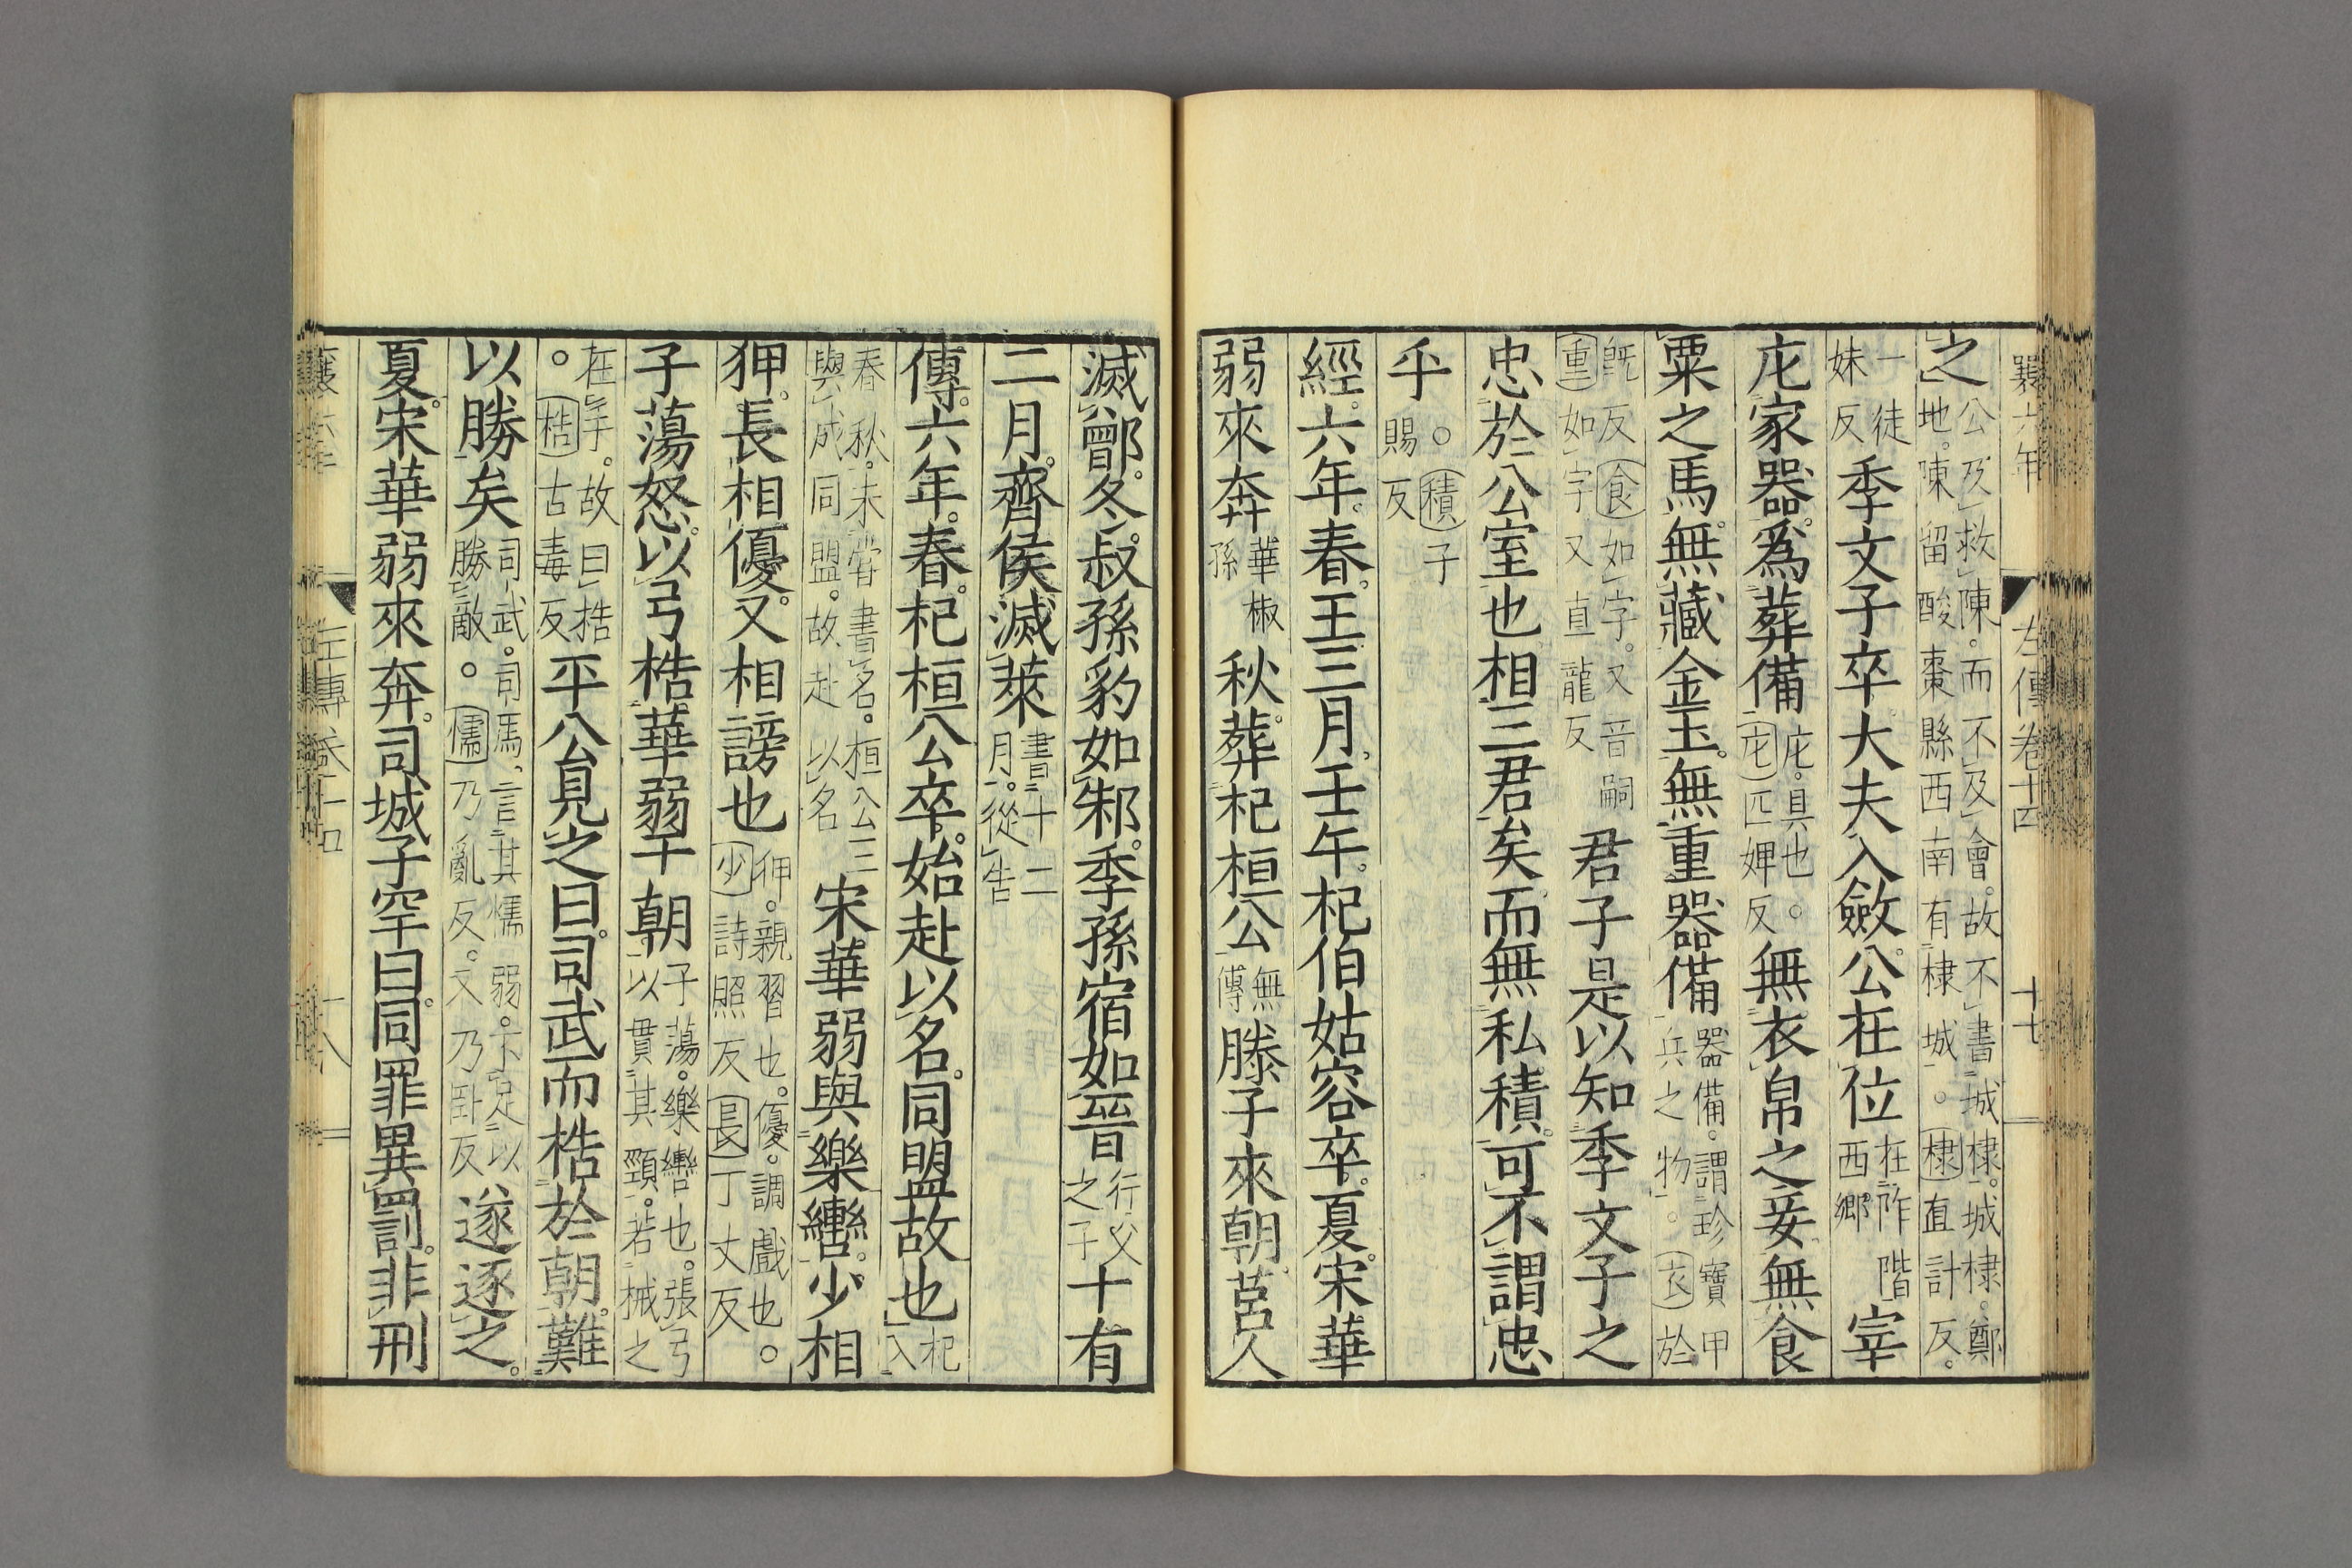 襄六年 左傳卷十四 十七
之公及救陳。而不及會。故不書城棣。城棣。鄭地。陳留酸棗縣西南有棣城。。棣直計反。
一徒妹反季文子卒大夫入斂。公在位在阼階西鄉宰
庀家器。爲葬備庀。具也。。庀匹婢反無衣帛之妾。無食
粟之馬。無藏金玉。無重器備器備。謂珍寶甲兵之物。。衣於
旣反食如字。又音嗣重如字又直龍反君子是以知季文子之
忠於公室也。相三君矣。而無私積。可不謂忠
乎。積子賜反
經。六年。春。王三月。壬午。杞伯姑容卒。夏。宋華
弱來奔華椒孫秋。葬杞桓公無傳滕子來朝。莒人
滅鄫。冬。叔孫豹如邾。季孫宿如晉行父之子十有
二月。齊侯滅萊書十二月。從告
傳。六年。春。杞桓公卒。始赴以名。同盟故也杞入
春秋。未嘗書名。桓公三與成同盟。故赴以名宋華弱與樂轡。少相
狎。長相優。又相謗也狎。親習也。優。調戲也。。少詩照反長丁丈反
子蕩怒。以弓梏華弱于朝子蕩。樂轡也。張弓以貫其頸。若械之
在手。故曰梏。梏古毒反平公見之曰。司武而梏於朝。難
以勝矣司武。司馬。言其懦弱。不足以勝敵。。懦乃亂反。又乃卧反遂逐之。
夏。宋華弱來奔。司城子罕曰。同罪異罰。非刑